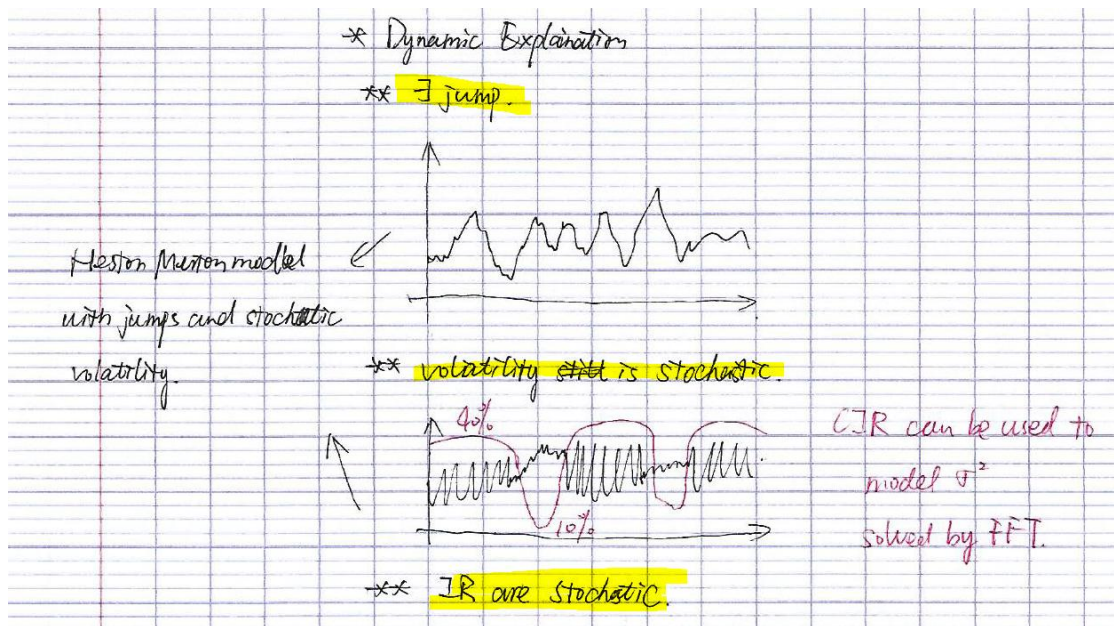 * Dynamic Explaination
** ∃ jump.
Heston Merton model
with jumps and stochastic
volatility.
** volatility still is stochastic.
40%
10%
CIR can be used to
model σ²
solved by FFT.
** IR are stochastic.